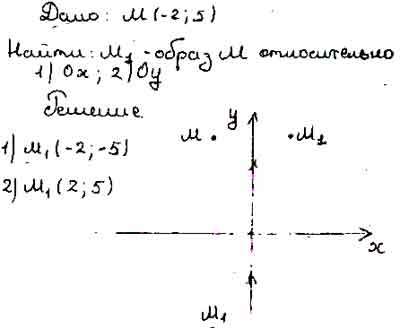 Дано: М(-2; 5)
Найти: М₁ - образ М относительно
1) Ох; 2) Оу
Решение.
1) М₁(-2; -5)
2) М₁(2; 5)
у
М
М₂
х
М₁